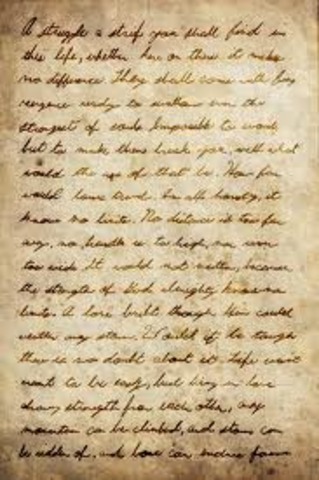 A struggle a strife you shall find in
this life, whether here or there it makes
no difference. They shall come with
ready to swallow even the
strongest of souls. Impossible to avoid,
but to make them break you, well what
would the use of that be. How far
would love travel. In all honesty, it
knows no limits. No distance is too far
away, no hurdle is to high, nor river
too wide. It would not matter, because
the strength of God almighty knows no
limits. A love built through Him could
weather any storm. Would it be tough
there is no doubt about it. Life wasn't
meant to be easy, but being in love
draws strength from each other, any
mountain can be climbed, and storm can
be ridden of, and love can endure